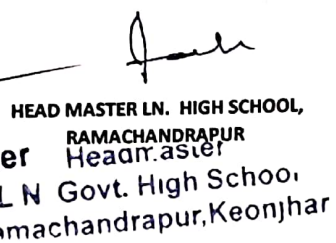 HEAD MASTER LN. HIGH SCHOOL,
RAMACHANDRAPUR
er Headmaster
L N Govt. High School
amachandrapur,Keonjhar